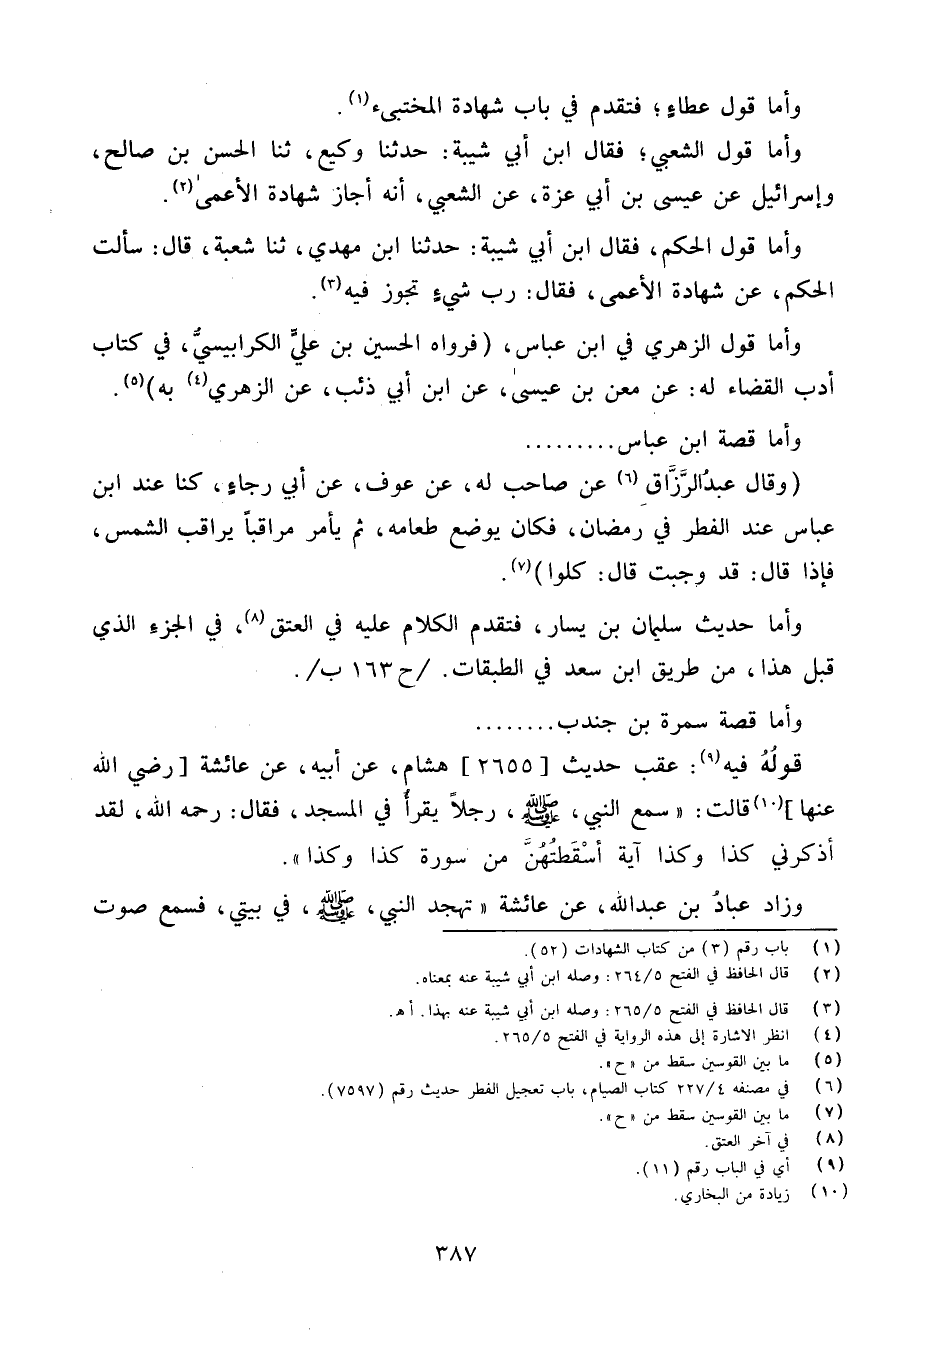 وأما قول عطاءٍ؛ فتقدم في باب شهادة المختبىء(١).
وأما قول الشعبي؛ فقال ابن أبي شيبة: حدثنا وكيع، ثنا الحسن بن صالح،
وإسرائيل عن عيسى بن أبي عزة، عن الشعبي، أنه أجاز شهادة الأعمىٰ(٢).
وأما قول الحكم، فقال ابن أبي شيبة: حدثنا ابن مهدي، ثنا شعبة، قال: سألت
الحكم، عن شهادة الأعمى، فقال: رب شيءٍ تجوز فيه(٣).
وأما قول الزهري في ابن عباس، (فرواه الحسين بن عليٍّ الكرابيسيُّ، في كتاب
أدب القضاء له: عن معن بن عيسىٰ، عن ابن أبي ذئب، عن الزهري(٤) به)(٥).
وأما قصة ابن عباس.........
(وقال عبدُالرَّزَّاقِ(٦) عن صاحب له، عن عوف، عن أبي رجاءٍ، كنا عند ابن
عباس عند الفطر في رمضان، فكان يوضع طعامه، ثم يأمر مراقباً يراقب الشمس،
فإذا قال: قد وجبت قال: كلوا)(٧).
وأما حديث سليمان بن يسار، فتقدم الكلام عليه في العتق(٨)، في الجزءِ الذي
قبل هذا، من طريق ابن سعد في الطبقات. /ح ١٦٣ ب/.
وأما قصة سمرة بن جندب........
قولُهُ فيه(٩): عقب حديث [٢٦٥٥] هشام، عن أبيه، عن عائشة [رضي الله
عنها](١٠) قالت: «سمع النبي، ﷺ، رجلاً يقرأُ في المسجد، فقال: رحمه الله، لقد
أذكرني كذا وكذا آية أسْقَطتُهُنَّ من سورة كذا وكذا».
وزاد عبادُ بن عبدالله، عن عائشة «تهجد النبي، ﷺ، في بيتي، فسمع صوت
(١) باب رقم (٣) من كتاب الشهادات (٥٢).
(٢) قال الحافظ في الفتح ٢٦٤/٥: وصله ابن أبي شيبة عنه بمعناه.
(٣) قال الحافظ في الفتح ٢٦٥/٥: وصله ابن أبي شيبة عنه بهذا. أهـ.
(٤) انظر الاشارة إلى هذه الرواية في الفتح ٢٦٥/٥.
(٥) ما بين القوسين سقط من «ح».
(٦) في مصنفه ٢٢٧/٤ كتاب الصيام، باب تعجيل الفطر حديث رقم (٧٥٩٧).
(٧) ما بين القوسين سقط من «ح».
(٨) في آخر العتق.
(٩) أي في الباب رقم (١١).
(١٠) زيادة من البخاري.
٣٨٧